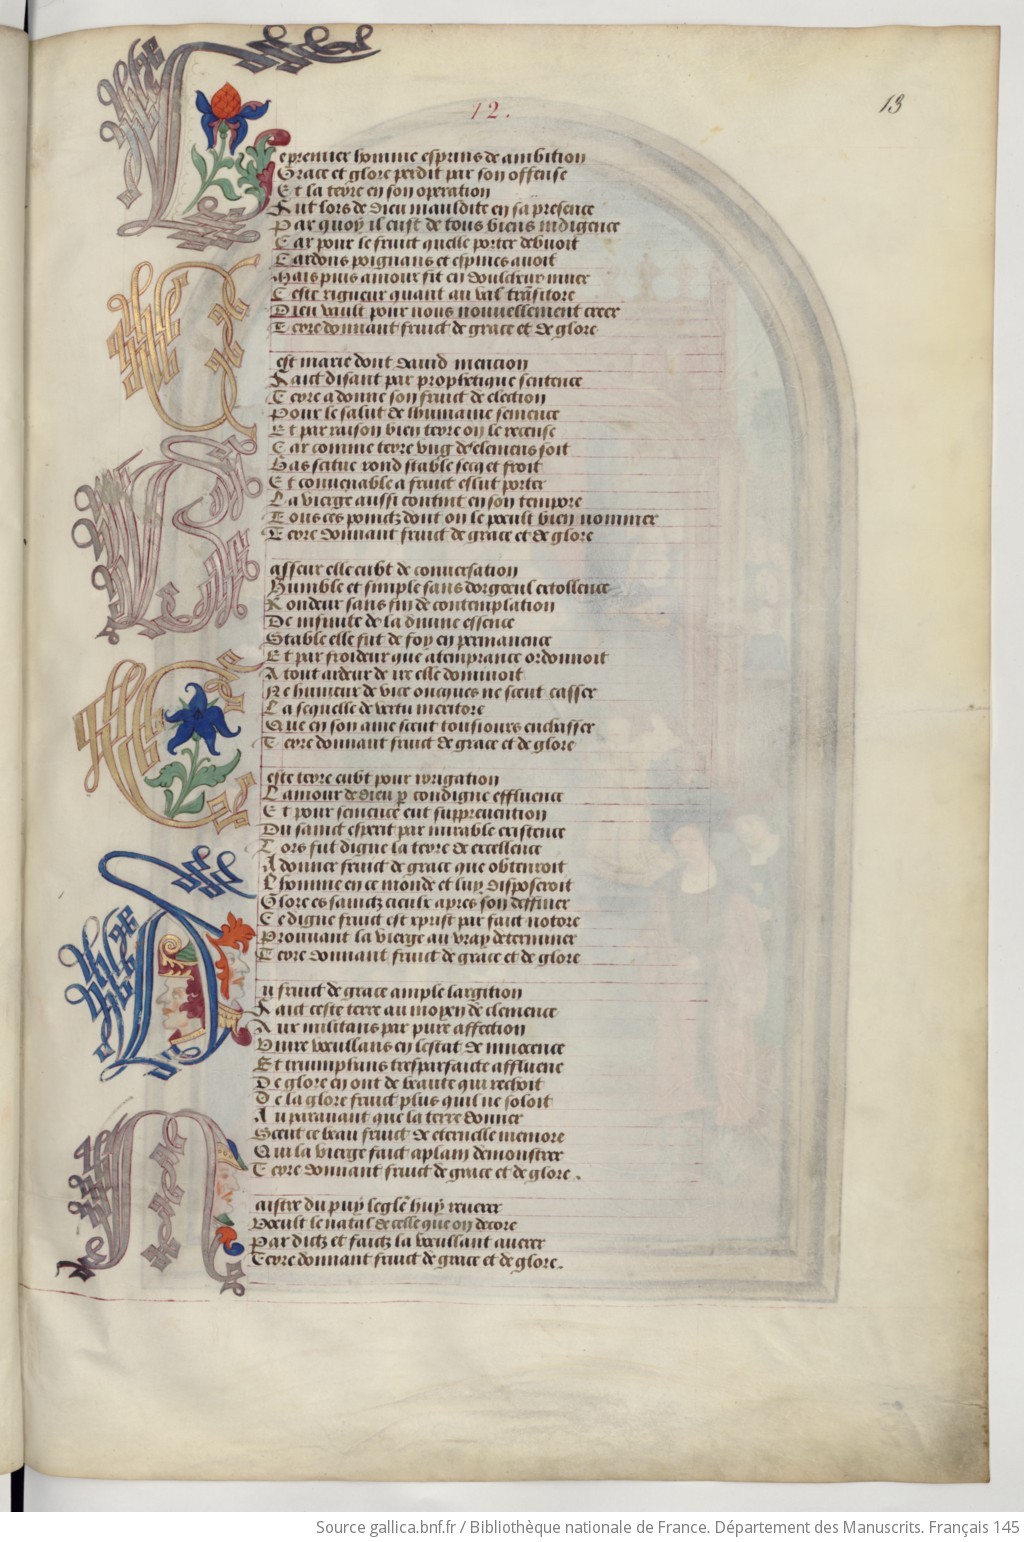 12.
13
Le premier homme esprins de ambition
Grace et glore perdit par son offense
Et la terre en son operation
Fut lors de dieu mauldite en sa presence
Par quoy il eust de tous biens indigence
Car pour le fruict quelle porter debuoit
Cardons poignans et espines auoit
Mais puis amour fit en doulcheur muer
Ceste rigueur quant au val trāsitore
Dieu vault pour nous nouuellement creer
Terre donnant fruict de grace et de glore
Cest marie dont dauid mencion
Faict disant par prophetique sentence
Terre a donne son fruict de election
Pour le salut de lhumaine semence
Et par raison bien terre on le recense
Car comme terre vng des elemens soit
Bas scitue rond stable secq et froit
Et conuenable a fruict eslut porter
La vierge aussi contint en son tempore
Tous ces poinctz dont on le poeult bien nommer
Terre donnant fruict de grace et de glore
Basseur elle eubt de conuersation
Humble et simple sans dorgoeul extollence
Rondeur sans fin de contemplation
De infinite de la diuine essence
Stable elle fut de foy en permanence
Et par froideur que atemprance ordonnoit
A tout ardeur de ire elle dominoit
Ne humeur de vice oncques ne sceut casser
La sequelle de vertu meritore
Que en son ame sceut tousiours enchasser
Terre donnant fruict de grace et de glore
Ceste terre eubt pour irrigation
Lamour de dieu p condigne effluence
Et pour semence eut supreuention
Du sainct esperit par mirable existence
Lors fut digne la terre de excellence
A donner fruict de grace que obtenroit
Lhomme en ce monde et luy disposeroit
Glore es sainctz cieulx apres son deffiner
Ce digne fruict est xprist par faict notore
Prouuant la vierge au vray determiner
Terre donnant fruict de grace et de glore
Du fruict de grace ample largition
Faict ceste terre au moyen de clemence
Aux militans par pure affection
Viure voeullans en lestat de innocence
Et triumphans tresparfaicte affluence
De glore en ont de beaute qui rechoit
De la glore fruict plus quil ne soloit
Auparauant que la terre donner
Sceut ce beau fruict de eternelle memore
Qui la vierge faict aplain demonstrer
Terre donnant fruict de grace et de glore.
Maistre du puy leglē huy reuerer
Voeult le natal de celle que on decore
Par dictz et faictz la voeullant auerer
Terre donnant fruict de grace et de glore.
Source gallica.bnf.fr / Bibliothèque nationale de France. Département des Manuscrits. Français 145